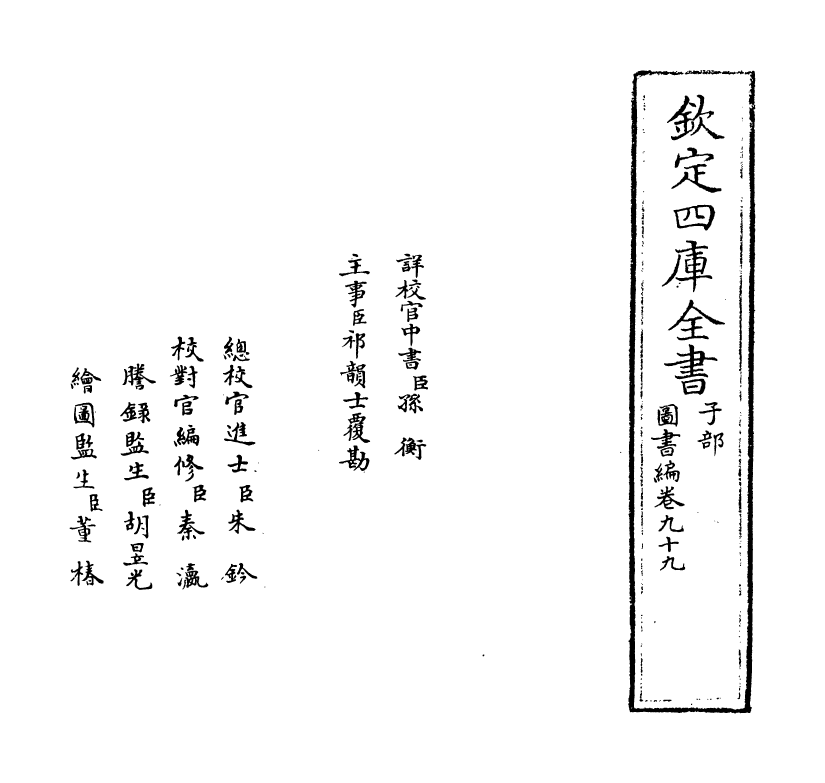 欽定四庫全書
子部
圖書編卷九十九
詳校官中書臣孫衡
主事臣祁韻士覆勘
總校官進士臣朱鈐
校對官編修臣秦瀛
謄録監生臣胡昱光
繪圖監生臣董椿